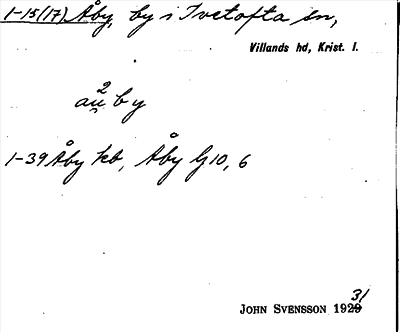 1-15(17) Åby, by i Ivetofta sn,
Villands hd, Krist. l.
2
au̯ b y
1-39 Åby kb, Åby G10, 6
31
JOHN SVENSSON 1929